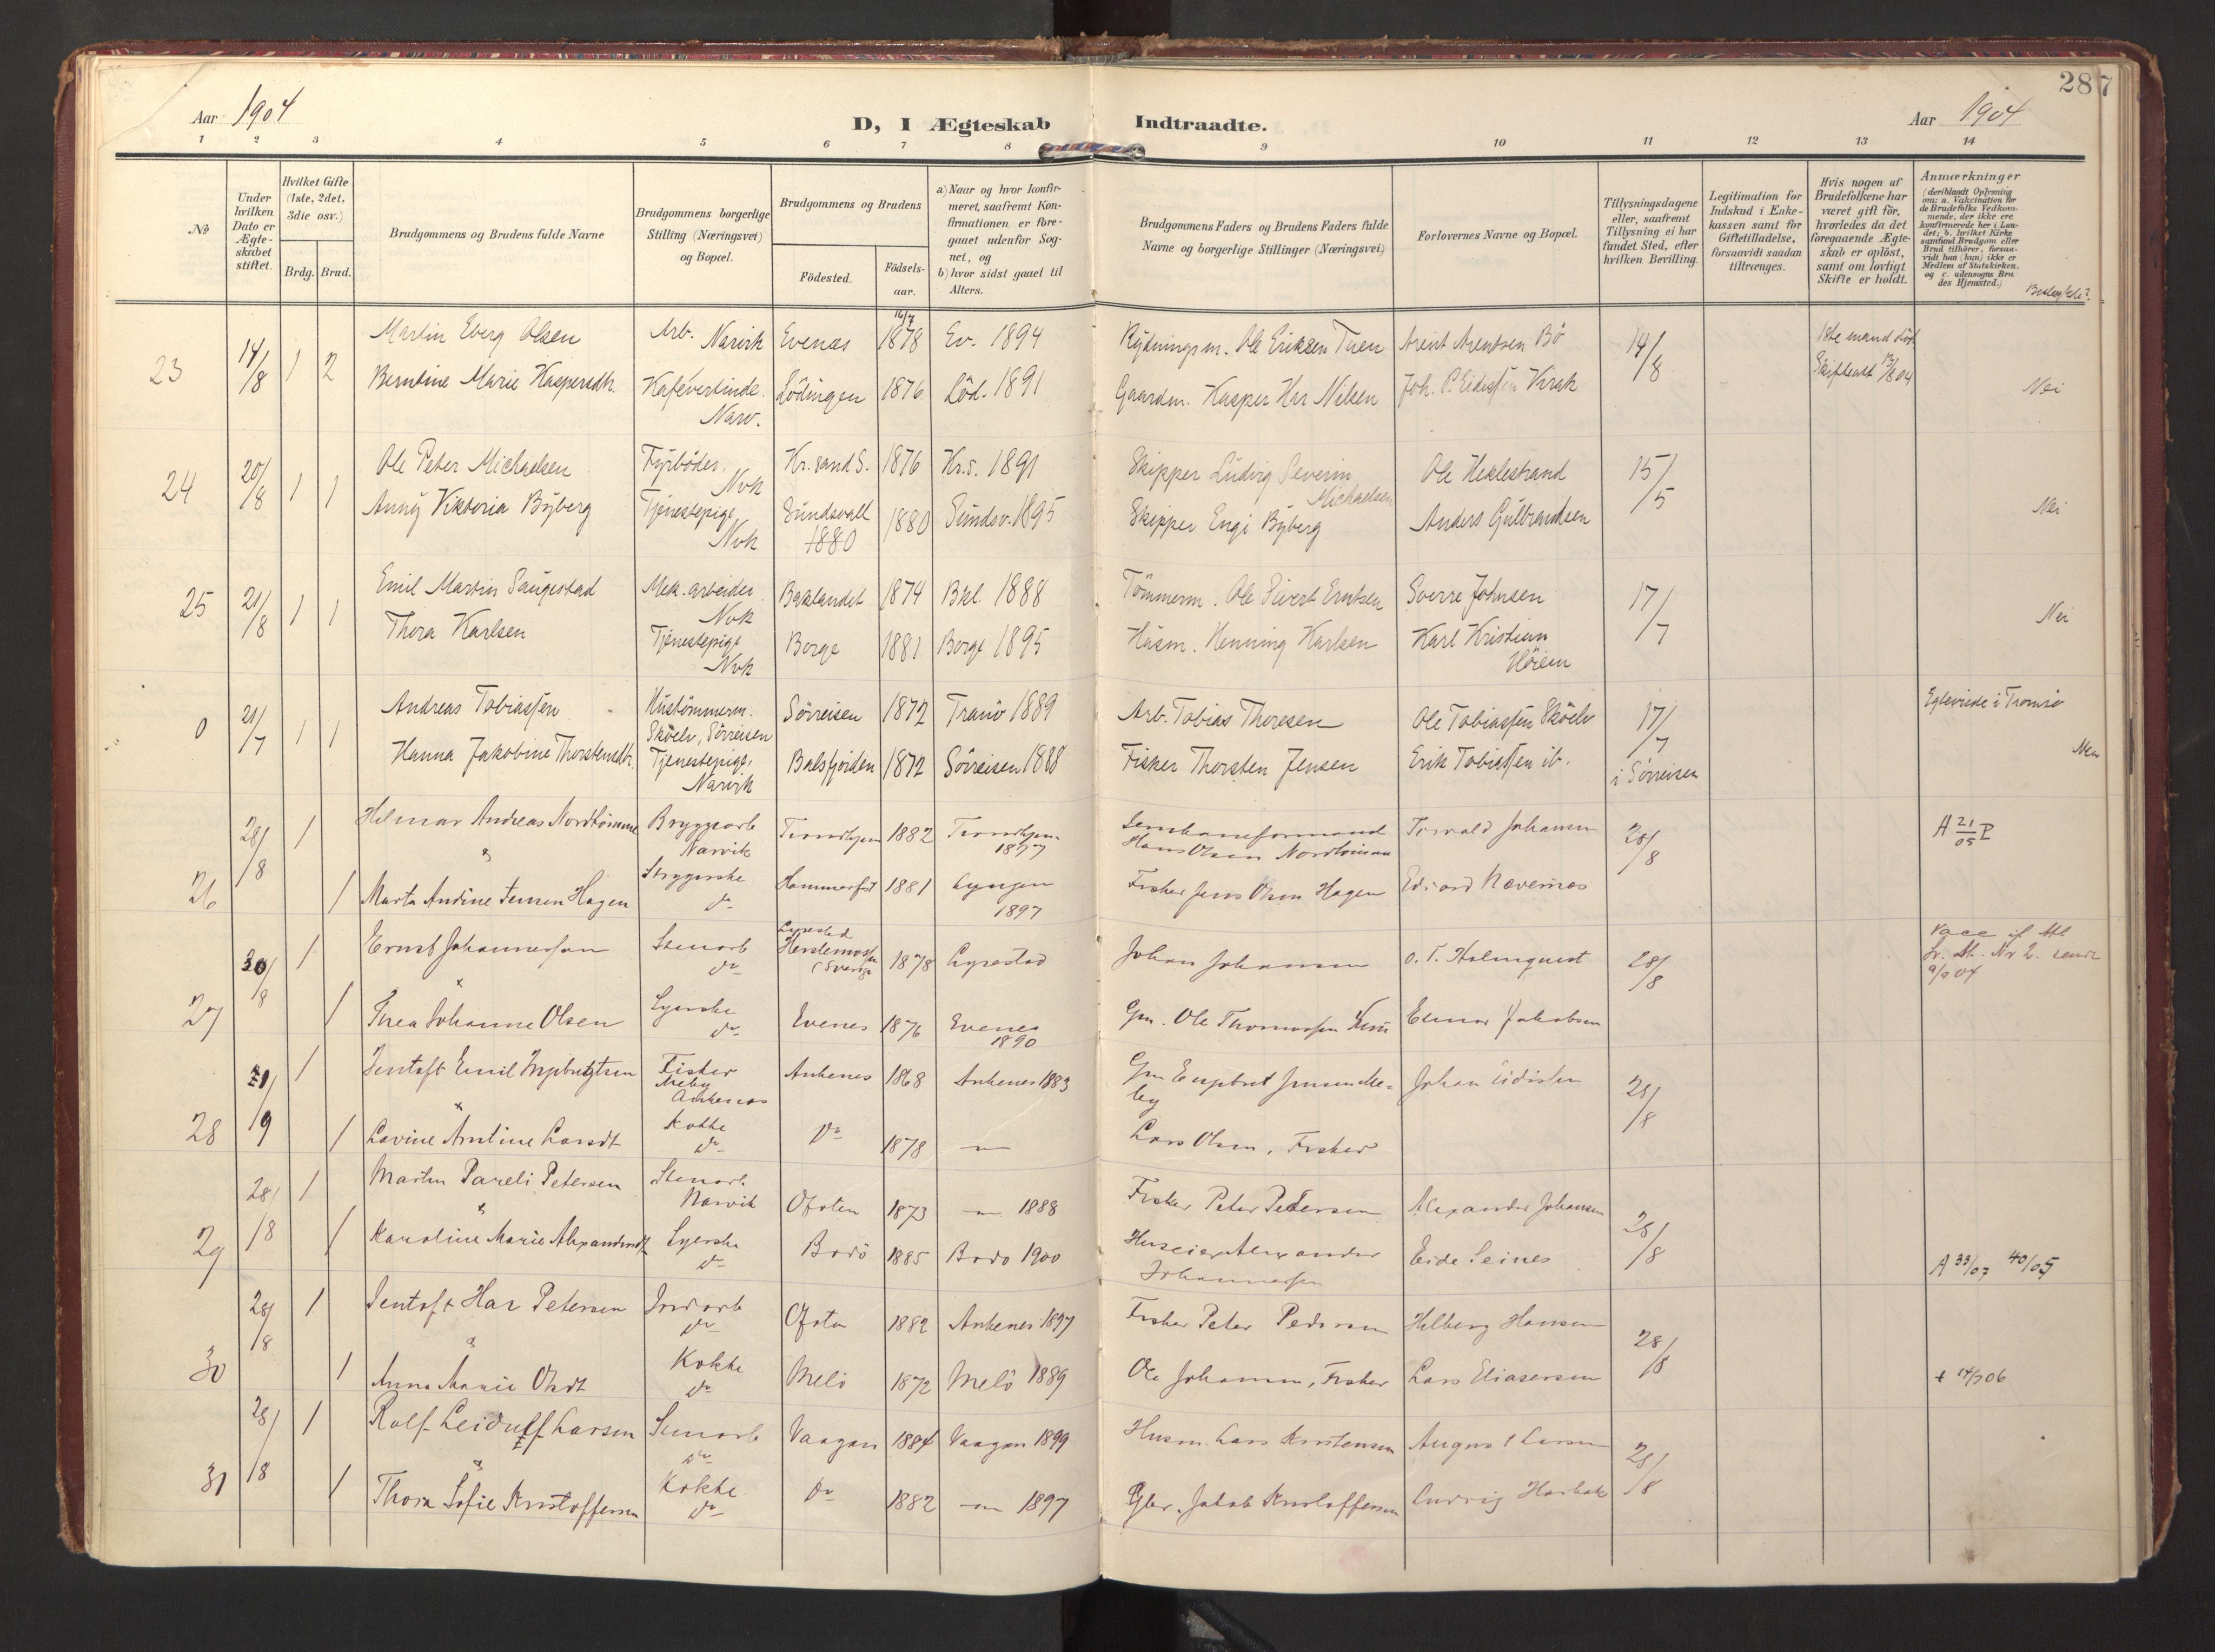 287
Aar 1904
D, I Ægteskab Indtraadte.
Aar 1904
1 2 3 4 5 6 7 8 9 10 11 12 13 14
No
Under hvilken Dato er Ægteskabet stiftet.
Hvilket Gifte (1ste, 2det, 3die osv.)
Brdg. Brud.
Brudgommens og Brudens fulde Navne
Brudgommens borgerlige Stilling (Næringsvei) og Bopæl.
Brudgommens og Brudens
Fødested.
Fødselsaar.
a) Naar og hvor konfirmeret, saafremt Konfirmationen er foregaaet udenfor Sognet, og
b) hvor sidst gaaet til Alters.
Brudgommens Faders og Brudens Faders fulde Navne og borgerlige Stillinger (Næringsvei)
Forlovernes Navne og Bopæl.
Tillysningsdagene eller, saafremt Tillysning ei har fundet Sted, efter hvilken Bevilling.
Legitimation for Indskud i Enkekassen samt for Giftetilladelse, forsaavidt saadan tiltrænges.
Hvis nogen af Brudefolkene har været gift før, hvorledes da det foregaaende Ægteskab er opløst, samt om lovligt Skifte er holdt.
Anmærkninger
(deriblandt Oplysning om: a. Vakcination for de Brudefolks Vedkommende, der ikke ere konfirmerede her i Landet; b. hvilket Kirkesamfund Brudgom eller Brud tilhører, forsaavidt han (hun) ikke er Medlem af Statskirken, og c. udensogns Brudes Hjemsted.)
Beslægtede?
23 14/8 1 2 Martin Eberg Olsen Arb. Narvik Evenæs 16/7 1878 Ev. 1894 Rydningsm. Ole Eriksen Tuen Arent Arentsen Bö 14/8 1ste mand död
Berntine Marie Kaspersdtr. Kafévertinde Narv. Lödingen 1876 Löd. 1891 Gaardm. Kasper Har Nilsen Joh. P. Eidissen Virak Skifteatt 13/8 04 Nei
24 20/8 1 1 Ole Peter Michaelsen Fyrböder Nvk Kr.sand S. 1876 Kr.s. 1891 Skipper Ludvig Severin Michaelsen Ole Heklestrand 15/5
Anny Viktoria Byberg Tjenestepige Nvk Sundsvall 1880 1880 Sundsv. 1895 Skipper Engi Byberg Anders Gulbrandsen Nei
25 21/8 1 1 Emil Martin Saugestad Mek. arbeider Nvk Baklandet 1874 Bkl. 1888 Tömmerm. Ole Sivert Erntsen Sverre Johnsen 17/7
Thora Karlsen Tjenestepige Nvk Borge 1881 Borge 1895 Husm. Henning Karlsen Karl Kristian Höiem Nei
0 21/7 1 1 Andreas Tobiassen Hustömmerm. Sköelv, Sörreisen Sörreisen 1872 Tranö 1889 Arb. Tobias Thoresen Ole Tobiassen Sköelv 17/7 i Sörreisen Egteviede i Tromsö
Hanna Jakobine Thorstensdtr. Tjenestepige, Narvik Balsfjorden 1872 Sörreisen 1888 Fisker Thorsten Jensen Erik Tobiassen ib. Nei
26 28/8 1 Hilmar Andreas Nordtömme Bryggearb Narvik Trondhjem 1882 Trondhjem 1897 Hans Olsen Torvald Johansen 28/8 A 21/05 P
1 Marta Andine Jensen Hagen Strygerske do Hammerfest 1881 Lyngen 1897 Fisker Jens Olsen Hagen Edvard Nævernes
27 30/8 1 Ernst Johannesson Stenarb do Lyrestad (Sverige 1878 Lyrestad Johan Johansen O. T. Holmquist 28/8
1 Thea Johanne Olsen Syerske do Evenes 1876 Evenes 1890 Gm. Ole Thomassen Einar Jakobsen
28 1/9 1 Jentoft Emil Ingebrigtsen Fisker Meby Ankenes Ankenes 1868 Ankenes 1883 Gm Engebret Jensen Meby Johan Eidissen 28/8
1 Lavine Antine Larsdt Kokke do do 1878 — Lars Olsen, Fisker
29 28/8 1 Martin Pareli Petersen Stenarb. Narvik Ofoten 1873 — 1888 Fisker Peter Pedersen Alexander Johansen 28/8
1 Karoline Marie Alexandersdt Syerske do Bodö 1885 Bodö 1900 Huseier Alexander Johannessen Eide Seines A 33/07 40/05
30 28/8 1 Jentoft Har Petersen Jordarb do Ofoten 1882 Ankenes 1897 Fisker Peter Pedersen Hilberg Hansen 28/8
1 Anna Marie Olsdt Kokke do Melö 1872 Melö 1889 Ole Johansen, Fisker Lars Eliasersen + 14/7 06
31 28/8 1 Rolf Leidulf Larsen Stenarb do Vaagan 1884 Vaagan 1899 Husm. Lars Kristensen August Larsen 28/8
1 Thora Sofie Kristoffersen Kokke do do 1882 — 1897 Gbr. Jakob Kristoffersen Ludvig Harbak